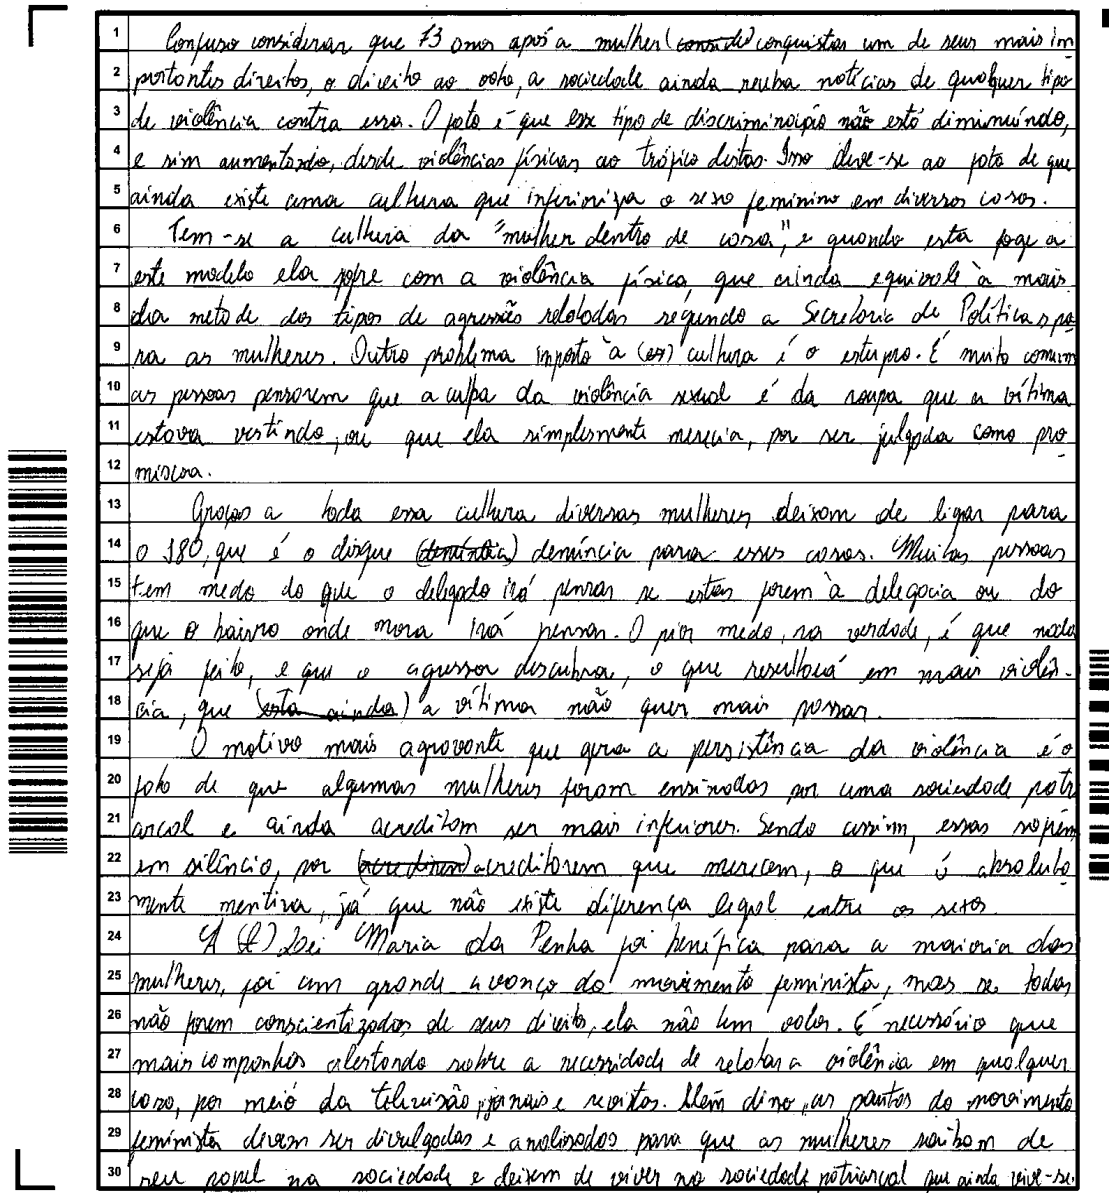 1 Confuso considerar que 73 anos após a mulher (conside) conquistar um de seus mais im
2 portantes direitos, o direito ao voto, a sociedade ainda receba notícias de qualquer tipo
3 de violência contra essa. O fato é que esse tipo de discriminação não está diminuindo,
4 e sim aumentando, desde violências físicas ao tráfico destas. Isso deve-se ao fato de que
5 ainda existe uma cultura que inferioriza o sexo feminino em diversos casos.
6 Tem-se a cultura da "mulher dentro de casa", e quando esta foge a
7 este modelo ela sofre com a violência física, que ainda equivale à mais
8 da metade dos tipos de agressão relatadas segundo a Secretaria de Políticas pa
9 ra as mulheres. Outro problema imposto à (as) cultura é o estupro. É muito comum
10 as pessoas pensarem que a culpa da violência sexual é da roupa que a vítima
11 estava vestindo, ou que ela simplesmente merecia, por ser julgada como pro
12 miscoa.
13 Graças a toda essa cultura diversas mulheres deixam de ligar para
14 o 180, que é o disque (denúntia) denúncia para esses casos. Muitas pessoas
15 tem medo do que o delegado irá pensar se estas forem à delegacia ou do
16 que o bairro onde mora irá pensar. O pior medo, na verdade, é que nada
17 seja feito, e que o agressor descubra, o que resultará em mais violên-
18 cia, que (esta ainda) a vítima não quer mais passar.
19 O motivo mais agravante que gera a persistência da violência é o
20 fato de que algumas mulheres foram ensinadas por uma sociedade patri
21 arcal e ainda acreditam ser mais inferiores. Sendo assim, essas sofrem
22 em silêncio, por (acredirem) acreditarem que merecem, o que é absoluta
23 mente mentira, já que não existe diferença legal entre os sexos.
24 A (L) Lei Maria da Penha foi benéfica para a maioria das
25 mulheres, foi um grande avanço do movimento feminista, mas se todas
26 não forem conscientizadas de seus direito, ela não tem valor. É necessário que
27 mais companhas alertando sobre a necessidade de relatar a violência em qualquer
28 caso, por meio da televisão, jornais e revistas. Além disso, as pautas do movimento
29 feminista devem ser divulgadas e analisadas para que as mulheres saibam de
30 seu papel na sociedade e deixem de viver na sociedade patriarcal que ainda vive-se.